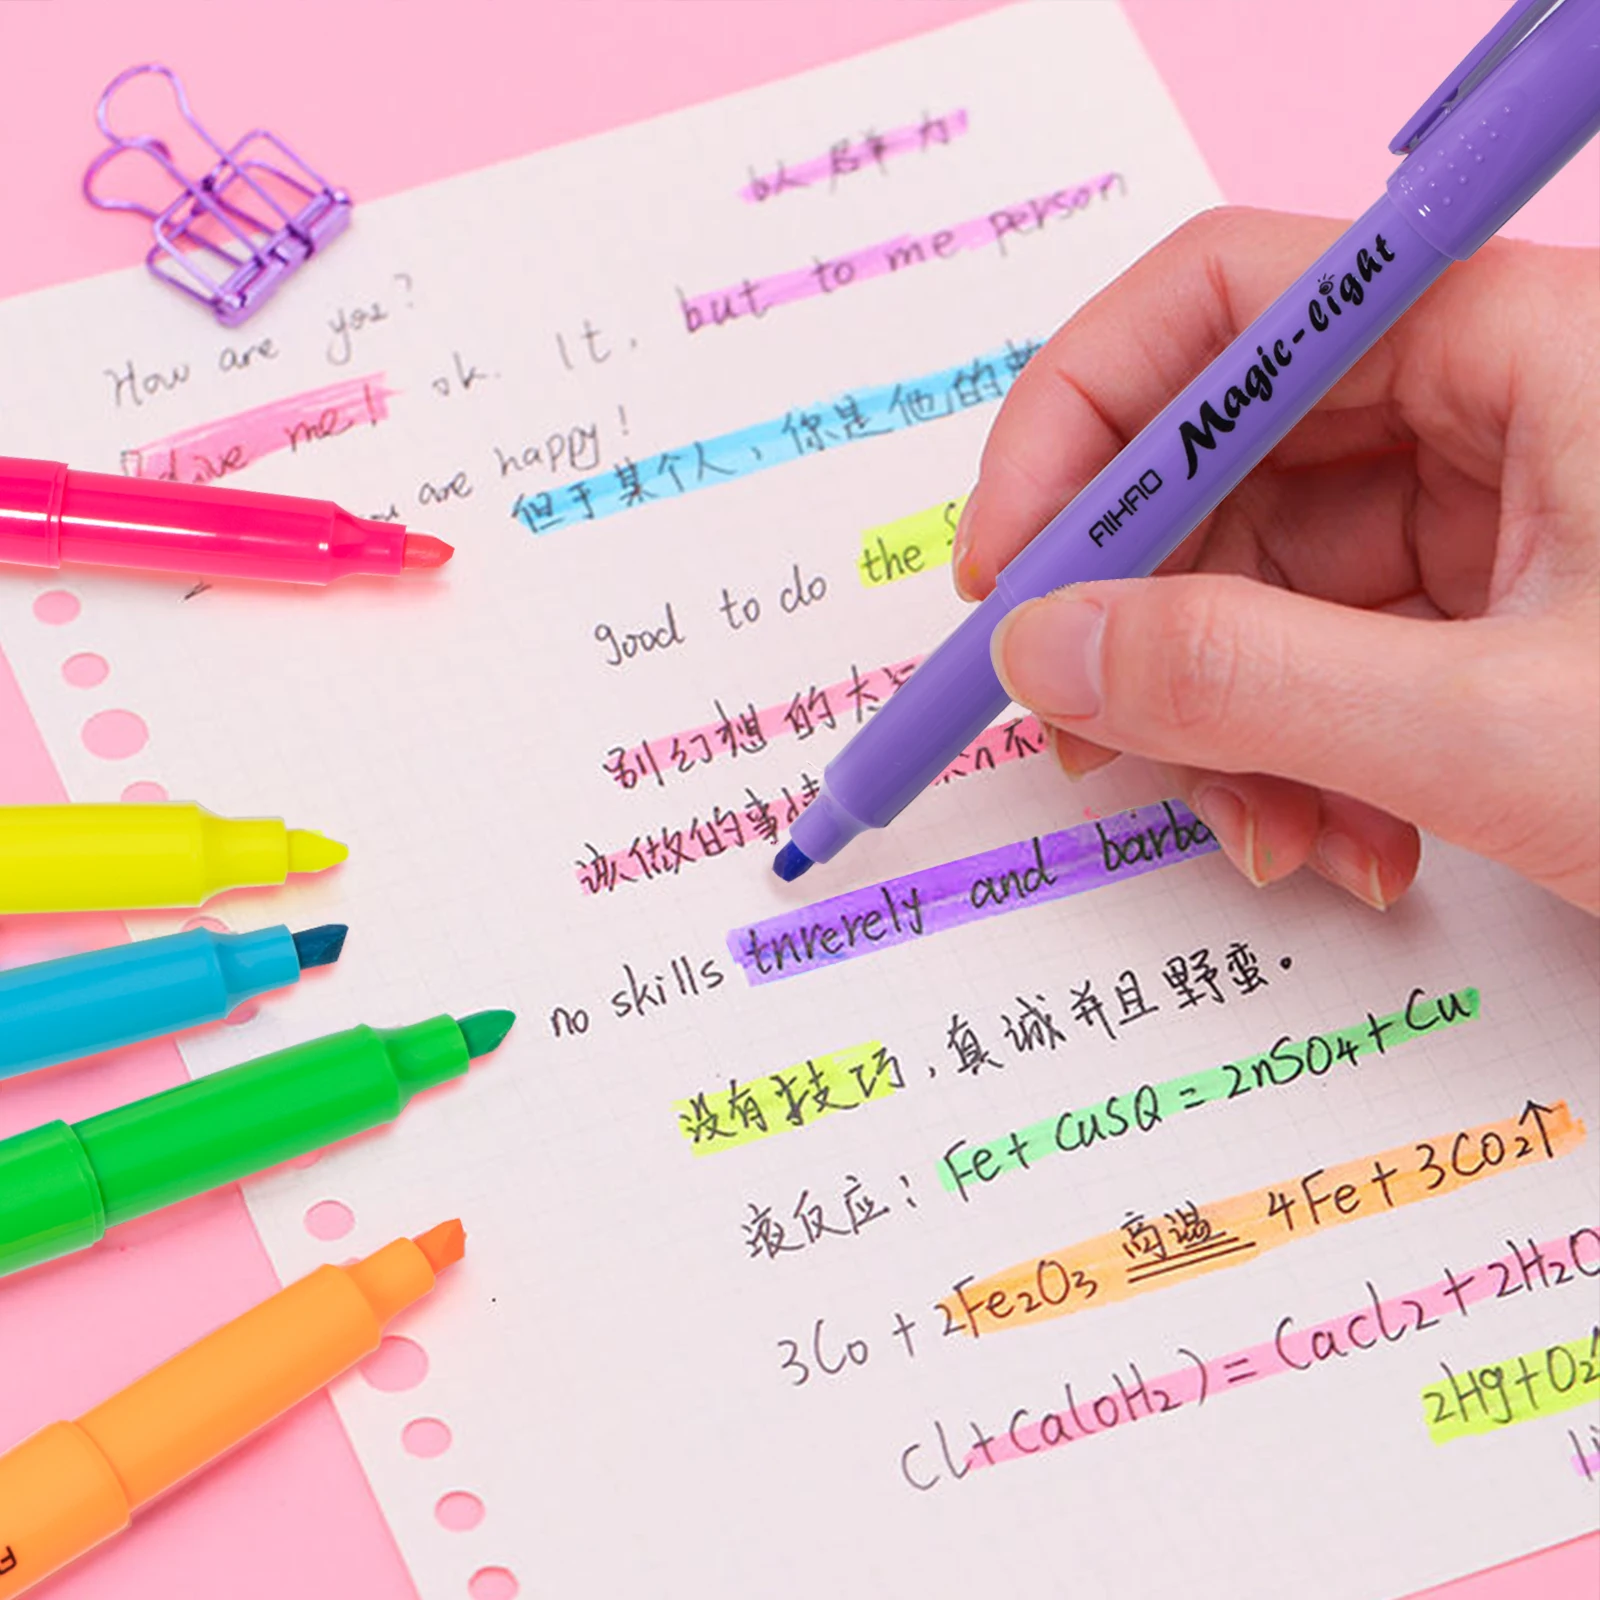 How are you?
me! ok. It. but to me person
are happy!
但于某个人，你是他的整
good to do the
别幻想的太
该做的事情 不
no skills tnrerely and barba
没有技巧，真诚并且野蛮。
液反应：Fe+CuSO = 2nSO4+Cu
3Co + 2Fe2O3 高温 4Fe+3Co2↑
Cl+Ca(oH2)=Cacl2+2H2O
2Hg+O2↑
li
AIHAO Magic-Light
A